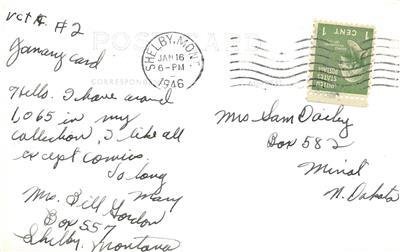 rct #2
January card
POST CARD
CORRESPONDENCE
SHELBY, MONT.
JAN 16
6-PM
1946
1 CENT 1
UNITED STATES POSTAGE
Hello. I have around
1,065 in my
collection, I like all
except comics.
So long
Mary
Mrs. Bill Gordon
Box 557
Shelby, Montana
Mrs Sam Dailey
Box 582
Minot
N. Dakota